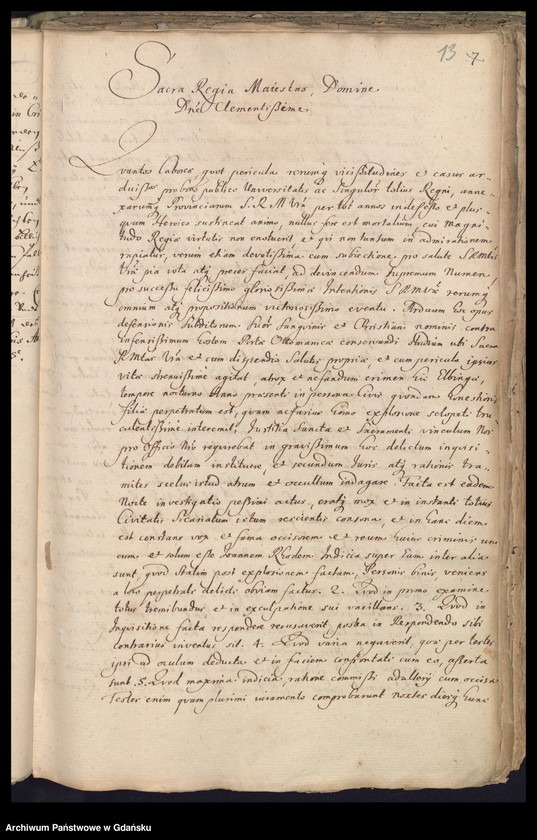 13 7
Sacra Regia Maiestas, Domine
Dne Clementissime
Quantos labores, quot pericula rerumq vicissitudines et casus ar-
duissos pro bono publico Universitatis ac Singulor totius Regni, anne-
xarumq Provinciarum S. R. M Vra per tot annos indefesso et plus-
quam Heroico sustineat animo, nullus fere est mortalium, cui magni-
tudo Regiae virtutis non enotuerit, et qui non tantum in admirationem
rapiatur, verum etiam devotissima cum subiectione pro salute SRMtis
Vrae pia vota atq preces faciat, ad devincendum supremum Numen,
pro successu felicissimo gloriosissimae Intentionis SRMVrae rerumq
omnium atq propositionum victoriosissimo eventu. Arduum hoc opus
defensionis subditorum suor sanguinis et Christiani nominis contra
infensissimum hostem Portae Ottomanicae conservandi studium ubi Sacra
RMtas Vra et cum dispendio Salutis propriae, et cum periculo ipsius
vitae strenuissime agitat, atrox et nefandum crimen hic Elbingae,
tempore nocturno Anno praesenti in persona Civis quondam honestioris
filiae perpetratum est, quam nefarius homo explosione sclopeti tru-
culentissime interemit, Justitia Sancta et Sacramenti vinculum Nos
pro Officio Nro requirebat in gravissimum hoc delictum inquisi-
tionem debitam instituere, et secundum Juris atq rationis tra-
mites scelus istud atrum et occultum indagare. Facta est eadem
Nocte investigatio pessimi actus, eratq mox et in instanti totius
Civitatis Sicariatum istum rescientis consona, et in hanc diem
est constans vox et fama occisorem et reum huius criminis uni-
cum et solum esse Joannem Rhoden Indicia super Eum inter alia
sunt, quod statim post explosionem factam, Personis binis, veniens
a loco perpetrati delicti obviam factus. 2. Quod in primo examine
totus tremibundus et in exculpatione sui vacillans. 3. Quod in
Inquisitione facta respondere recusaverit, postea in Respondendo sibi
contrarius inventus sit. 4. Quod varia negaverit, quae per testes
ipsi ad oculum deducta et in faciem confrontati cum eo, asserta
sunt. 5. Quod maxima indicia ratione commissi adulterij cum occisa
Testes enim quam plurimi iuramento comprobarunt noctes diesq hunc
Archiwum Państwowe w Gdańsku